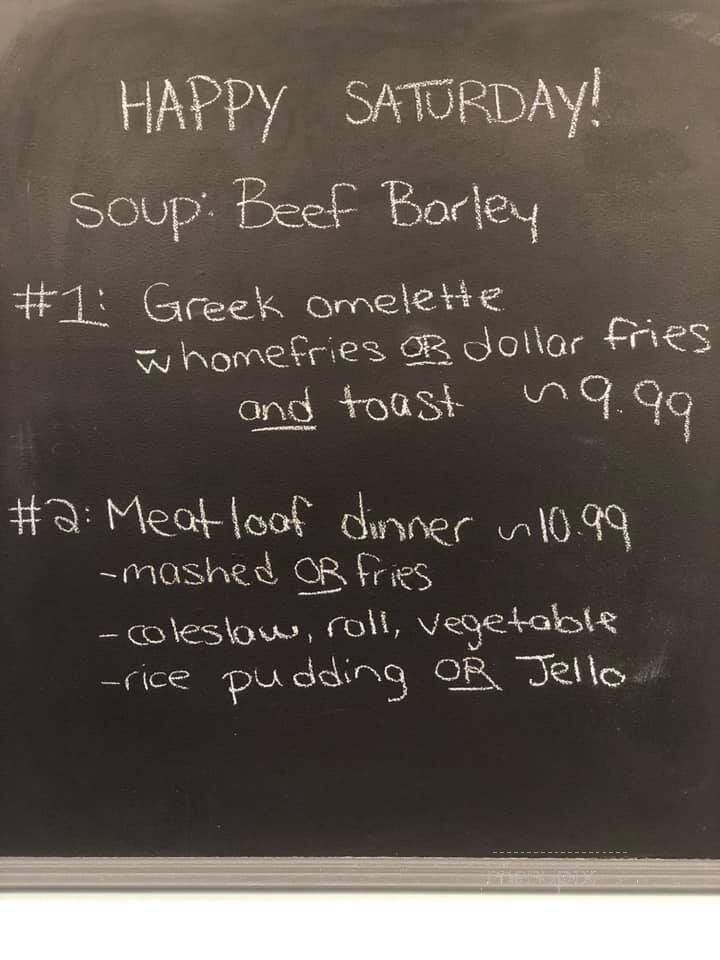 HAPPY SATURDAY!
Soup: Beef Barley
#1: Greek omelette
w̅ homefries OR dollar fries
and toast ~ 9.99
#2: Meatloaf dinner ~ 10.99
- mashed OR fries
- coleslaw, roll, vegetable
- rice pudding OR Jello
menupix